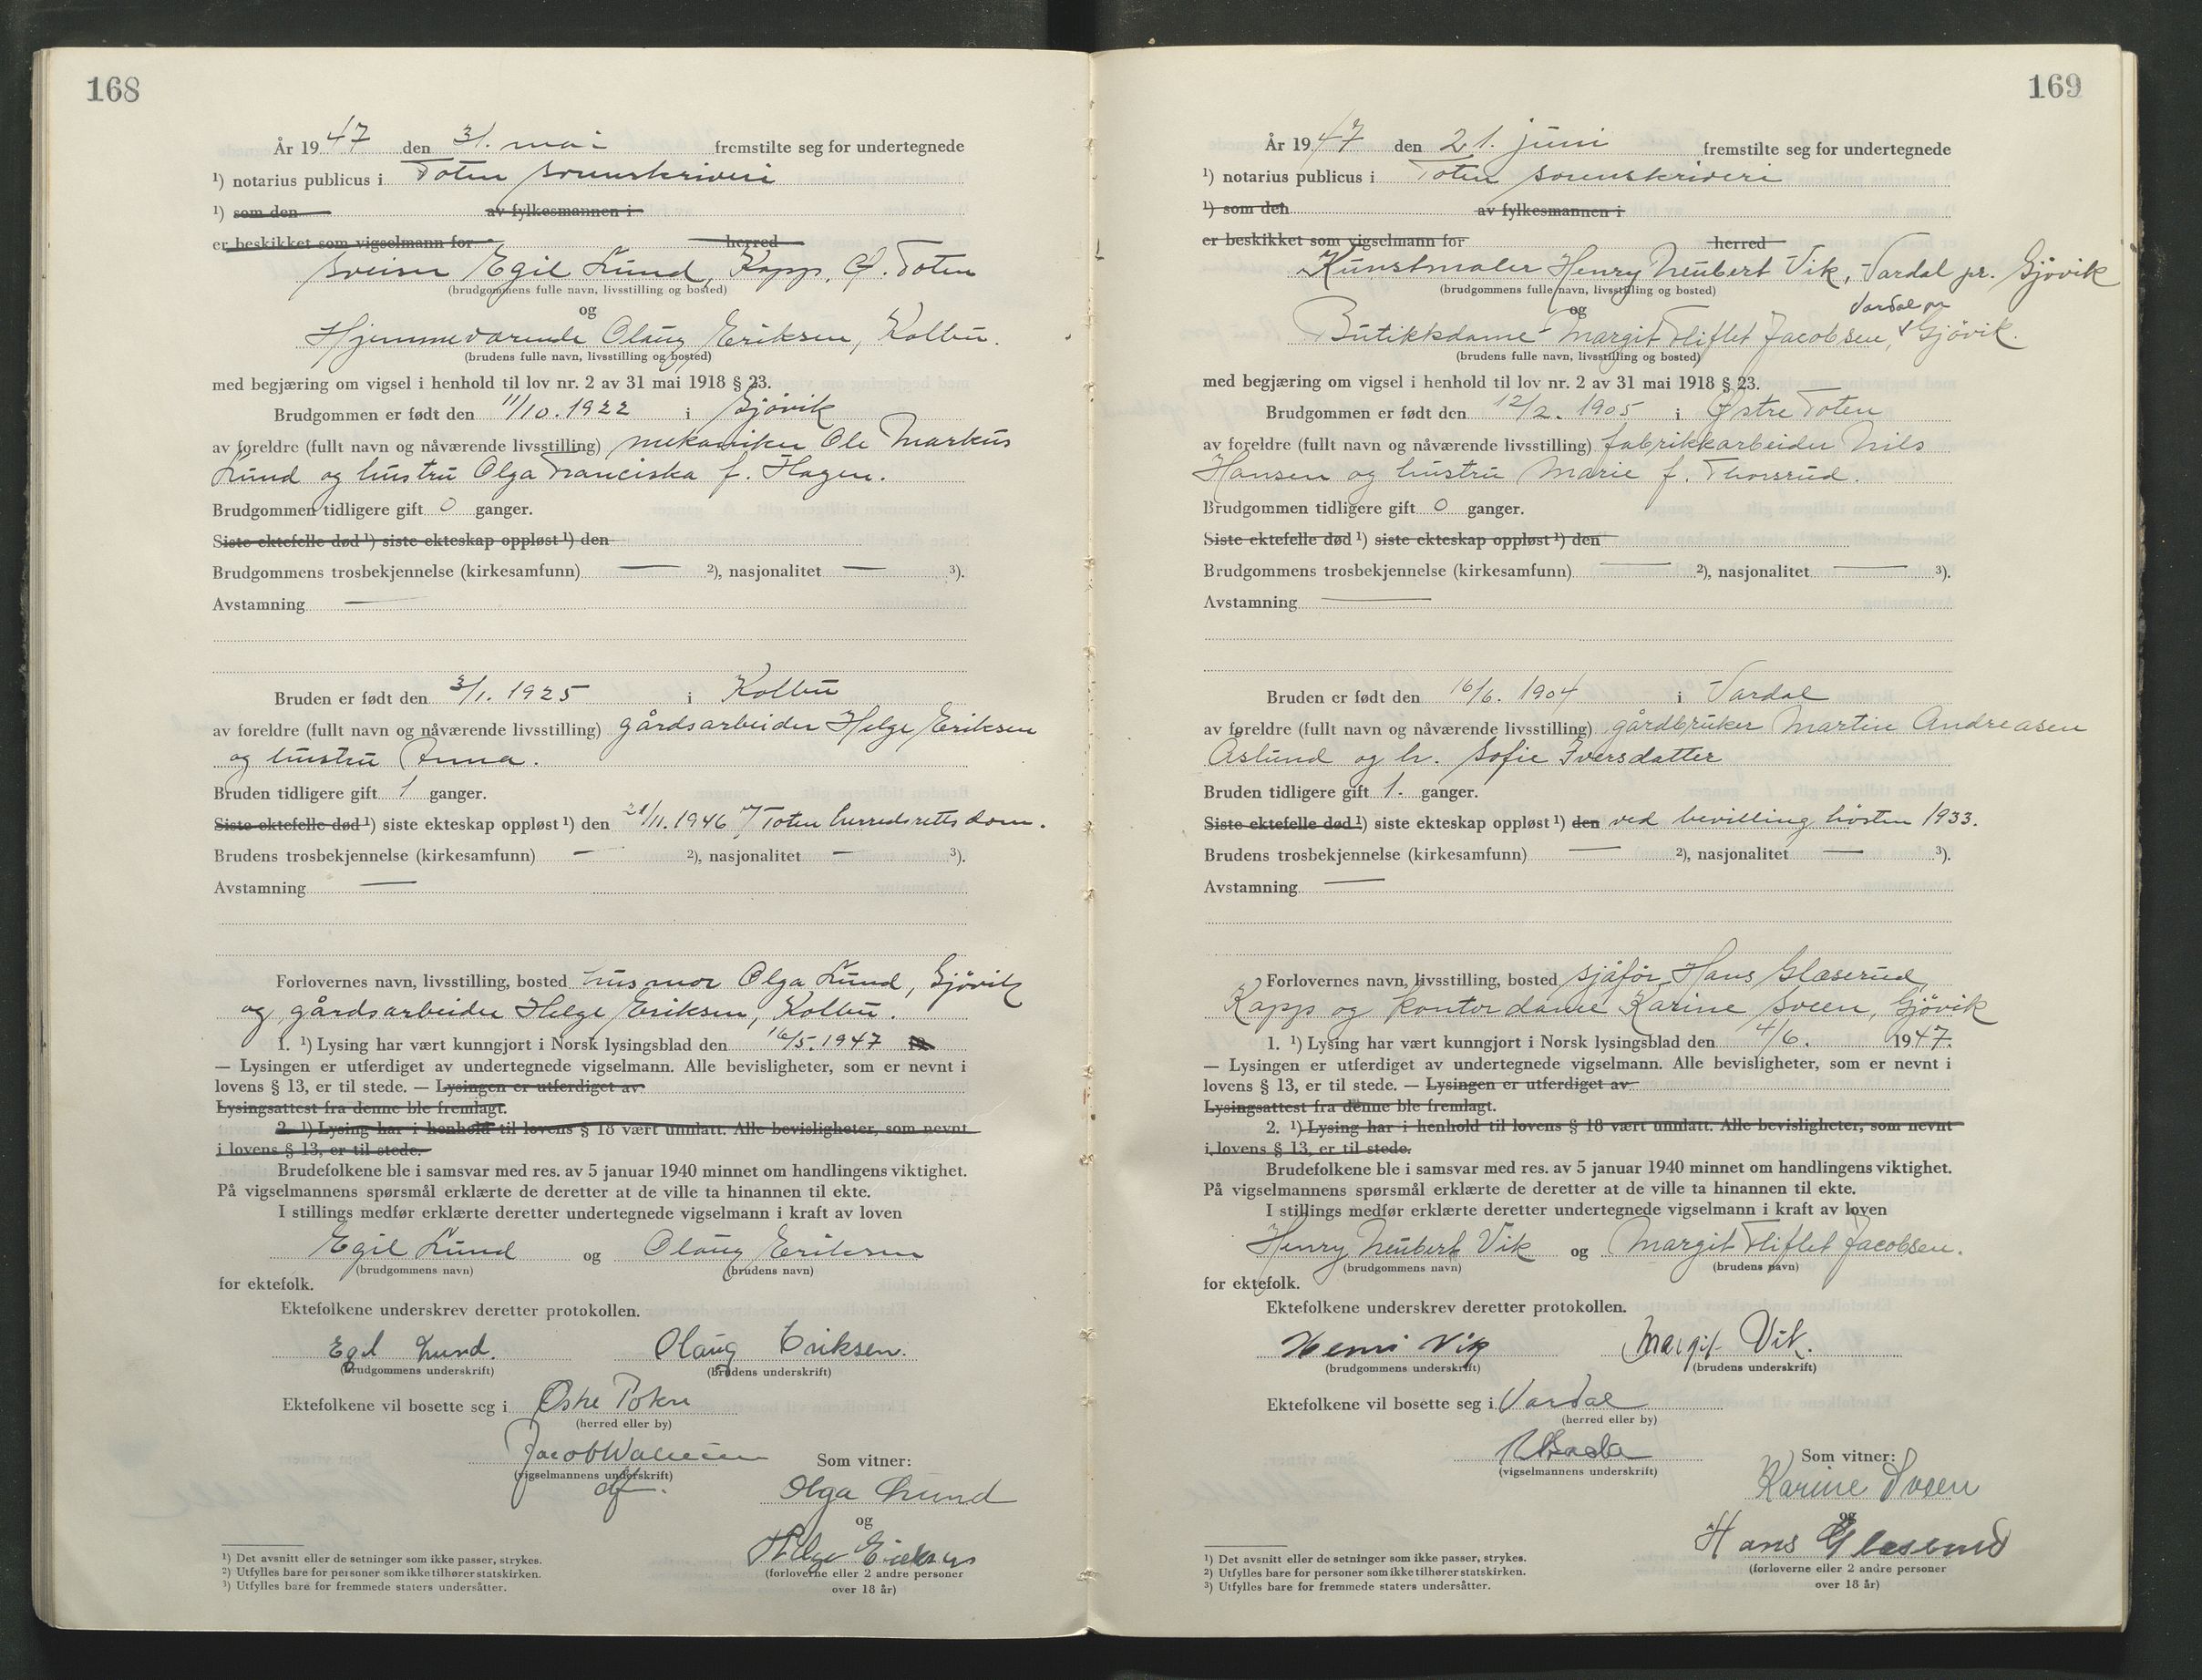 168
År 1947 den 31. mai fremstilte seg for undertegnede
¹) notarius publicus i Toten sorenskriveri
¹) som den av fylkesmannen i
er beskikket som vigselmann for herred
sveiser Egil Lund, Kapp, Ø. Toten
(brudgommens fulle navn, livsstilling og bosted)
og
Hjemmeværende Olaug Eriksen, Kolbu.
(brudens fulle navn, livsstilling og bosted)
med begjæring om vigsel i henhold til lov nr. 2 av 31 mai 1918 § 23.
Brudgommen er født den 11/10. 1922 i Gjøvik
av foreldre (fullt navn og nåværende livsstilling) mekaniker Ole Markus
Lund og hustru Olga Franciska f. Hagen.
Brudgommen tidligere gift 0 ganger.
Siste ektefelle død ¹) siste ekteskap oppløst ¹) den
Brudgommens trosbekjennelse (kirkesamfunn) — ²), nasjonalitet — ³).
Avstamning —
Bruden er født den 3/1. 1925 i Kolbu
av foreldre (fullt navn og nåværende livsstilling) gårdsarbeider Helge Eriksen
og hustru Anna.
Bruden tidligere gift 1 ganger.
Siste ektefelle død ¹) siste ekteskap oppløst ¹) den 21/11. 1946 v/Toten herredsrettsdom.
Brudens trosbekjennelse (kirkesamfunn) — ²), nasjonalitet — ³).
Avstamning —
Forlovernes navn, livsstilling, bosted husmor Olga Lund, Gjøvik
og gårdsarbeider Helge Eriksen, Kolbu.
1. ¹) Lysing har vært kunngjort i Norsk lysingsblad den 16/5. 1947
— Lysingen er utferdiget av undertegnede vigselmann. Alle bevisligheter, som er nevnt i
lovens § 13, er til stede. — Lysingen er utferdiget av
Lysingsattest fra denne ble fremlagt.
2. ¹) Lysing har i henhold til lovens § 18 vært unnlatt. Alle bevisligheter, som nevnt
i lovens § 13, er til stede.
Brudefolkene ble i samsvar med res. av 5 januar 1940 minnet om handlingens viktighet.
På vigselmannens spørsmål erklærte de deretter at de ville ta hinannen til ekte.
I stillings medfør erklærte deretter undertegnede vigselmann i kraft av loven
Egil Lund og Olaug Eriksen
(brudgommens navn) (brudens navn)
for ektefolk.
Ektefolkene underskrev deretter protokollen.
Egil Lund. Olaug Eriksen.
(brudgommens underskrift) (brudens underskrift)
Ektefolkene vil bosette seg i Østre Toten
(herred eller by)
Jacob
(vigselmannens underskrift)
Som vitner:
Olga Lund
og
Helge Eriksen
(forloverne eller 2 andre personer
over 18 år)
¹) Det avsnitt eller de setninger som ikke passer, strykes.
²) Utfylles bare for personer som ikke tilhører statskirken.
³) Utfylles bare for fremmede staters undersåtter.
169
År 1947 den 21. juni fremstilte seg for undertegnede
¹) notarius publicus i Toten sorenskriveri
¹) som den av fylkesmannen i
er beskikket som vigselmann for herred
Kunstmaler Henry Neubert Vik, Vardal pr. Gjøvik
(brudgommens fulle navn, livsstilling og bosted)
og
Vardal pr
Butikkdame Margit Fliflet Jacobsen, Gjøvik.
(brudens fulle navn, livsstilling og bosted)
med begjæring om vigsel i henhold til lov nr. 2 av 31 mai 1918 § 23.
Brudgommen er født den 12/2. 1905 i Østre Toten
av foreldre (fullt navn og nåværende livsstilling) fabrikkarbeider Nils
Hansen og hustru Marie f. Thorsrud.
Brudgommen tidligere gift 0 ganger.
Siste ektefelle død ¹) siste ekteskap oppløst ¹) den
Brudgommens trosbekjennelse (kirkesamfunn) — ²), nasjonalitet — ³).
Avstamning —
Bruden er født den 16/6. 1904 i Vardal
av foreldre (fullt navn og nåværende livsstilling) gårdbruker Martin Andreasen
Åslund og h. Sofie Iversdatter
Bruden tidligere gift 1. ganger.
Siste ektefelle død ¹) siste ekteskap oppløst ¹) den ved bevilling høsten 1933.
Brudens trosbekjennelse (kirkesamfunn) — ²), nasjonalitet — ³).
Avstamning —
Forlovernes navn, livsstilling, bosted sjåfør Hans Glæserud,
Kapp og kontordame Karine Sveen, Gjøvik
1. ¹) Lysing har vært kunngjort i Norsk lysingsblad den 4/6. 1947.
— Lysingen er utferdiget av undertegnede vigselmann. Alle bevisligheter, som er nevnt i
lovens § 13, er til stede. — Lysingen er utferdiget av
Lysingsattest fra denne ble fremlagt.
2. ¹) Lysing har i henhold til lovens § 18 vært unnlatt. Alle bevisligheter, som nevnt
i lovens § 13, er til stede.
Brudefolkene ble i samsvar med res. av 5 januar 1940 minnet om handlingens viktighet.
På vigselmannens spørsmål erklærte de deretter at de ville ta hinannen til ekte.
I stillings medfør erklærte deretter undertegnede vigselmann i kraft av loven
Henry Neubert Vik og Margit Fliflet Jacobsen.
(brudgommens navn) (brudens navn)
for ektefolk.
Ektefolkene underskrev deretter protokollen.
Henri Vik Margit Vik.
(brudgommens underskrift) (brudens underskrift)
Ektefolkene vil bosette seg i Vardal
(herred eller by)
(vigselmannens underskrift)
Som vitner:
Karine Sveen
og
Hans Glæserud
(forloverne eller 2 andre personer
over 18 år)
¹) Det avsnitt eller de setninger som ikke passer, strykes.
²) Utfylles bare for personer som ikke tilhører statskirken.
³) Utfylles bare for fremmede staters undersåtter.